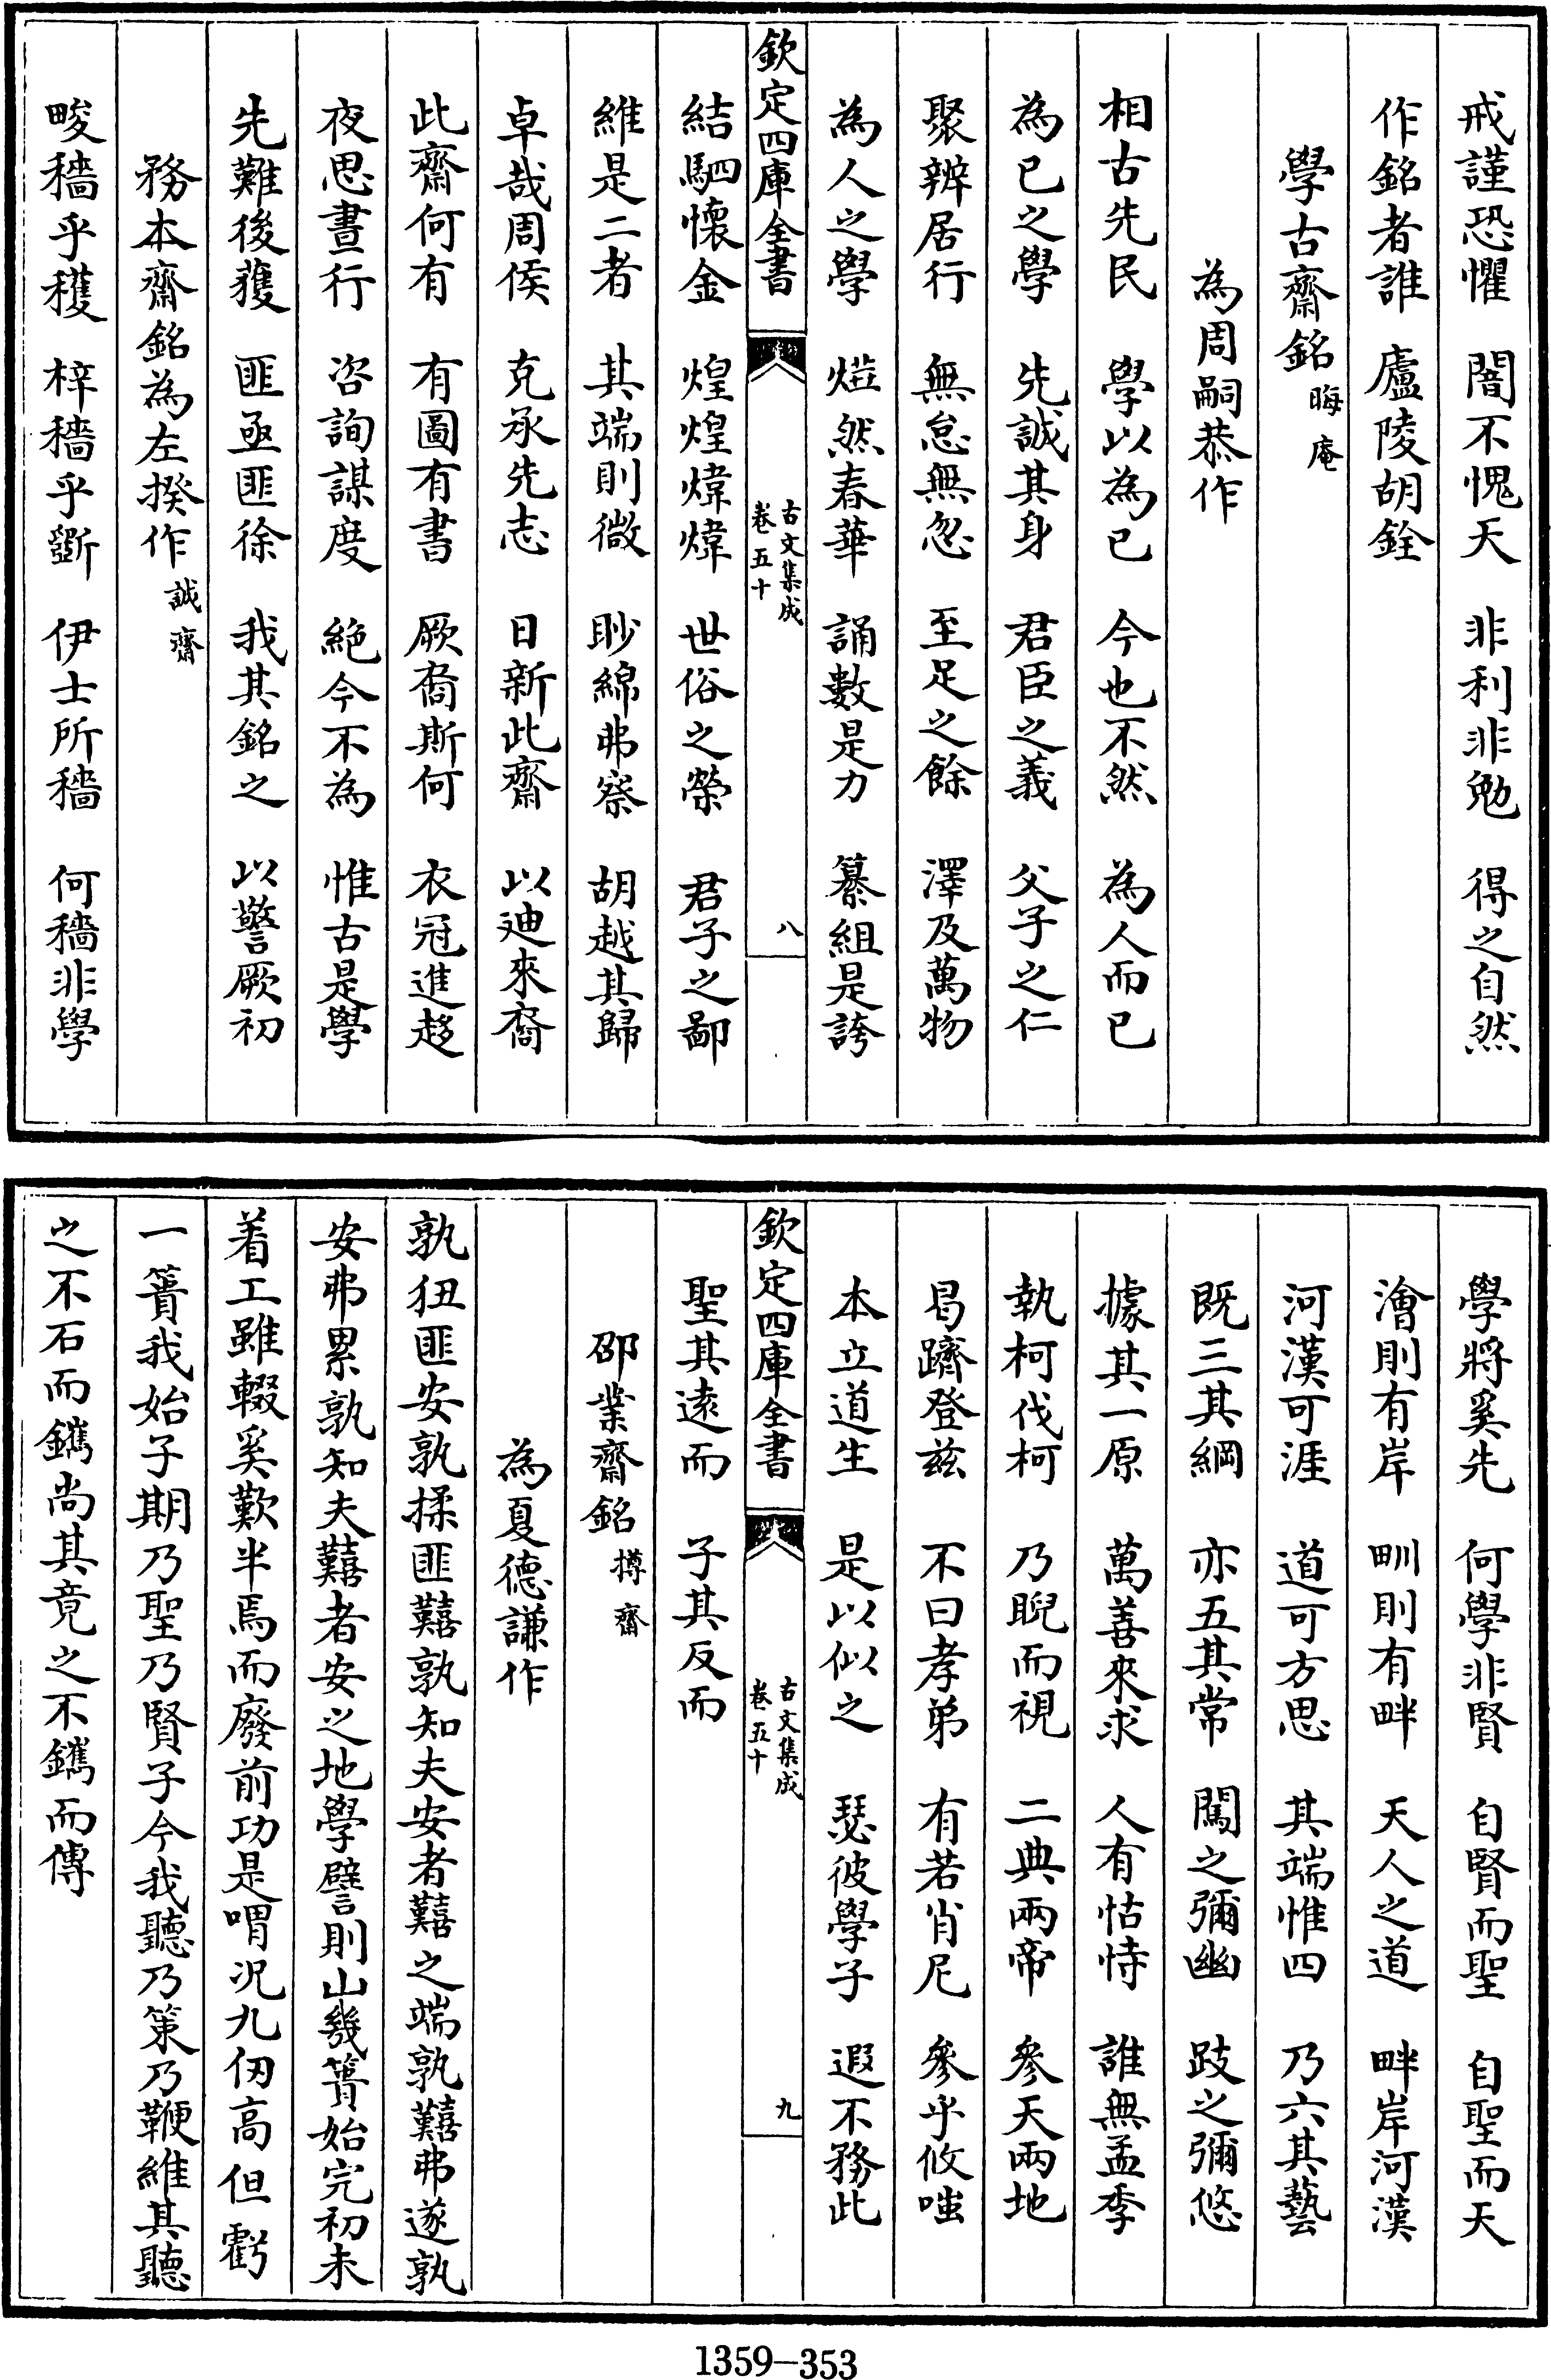 戒謹恐懼　闇不愧天　非利非勉　得之自然
作銘者誰　廬陵胡銓
學古齋銘晦庵
為周嗣恭作
相古先民　學以為已　今也不然　為人而已
為已之學　先誠其身　君臣之義　父子之仁
聚辨居行　無怠無忽　至足之餘　澤及萬物
為人之學　燁然春華　誦數是力　纂組是誇
欽定四庫全書
古文集成
卷五十
八
結駟懷金　煌煌煒煒　世俗之榮　君子之鄙
維是二者　其端則微　眇綿弗察　胡越其歸
卓哉周侯　克承先志　日新此齋　以迪來裔
此齋何有　有圖有書　厥裔斯何　衣冠進趍
夜思晝行　咨詢謀度　絶今不為　惟古是學
先難後獲　匪亟匪徐　我其銘之　以警厥初
務本齋銘為左揆作誠齋
畯穡乎穫　梓穡乎斵　伊士所穡　何穡非學
學將奚先　何學非賢　自賢而聖　自聖而天
澮則有岸　甽則有畔　天人之道　畔岸河漢
河漢可涯　道可方思　其端惟四　乃六其藝
既三其綱　亦五其常　闖之彌幽　跂之彌悠
據其一原　萬善來求　人有怙恃　誰無孟季
執柯伐柯　乃睨而視　二典兩帝　參天兩地
曷躋登兹　不曰孝弟　有若肖尼　參乎攸嗤
本立道生　是以似之　瑟彼學子　遐不務此
欽定四庫全書
古文集成
卷五十
九
聖其遠而　子其反而
邵業齋銘摶齋
為夏德謙作
孰狃匪安孰揉匪囏孰知夫安者囏之端孰囏弗遂孰
安弗累孰知夫囏者安之地學譬則山幾簣始完初未
着工雖輟奚歎半焉而廢前功是喟况九仭高但虧
一簣我始子期乃聖乃賢子今我聽乃策乃鞭維其聽
之不石而鐫尚其竟之不鐫而傳
1359-353